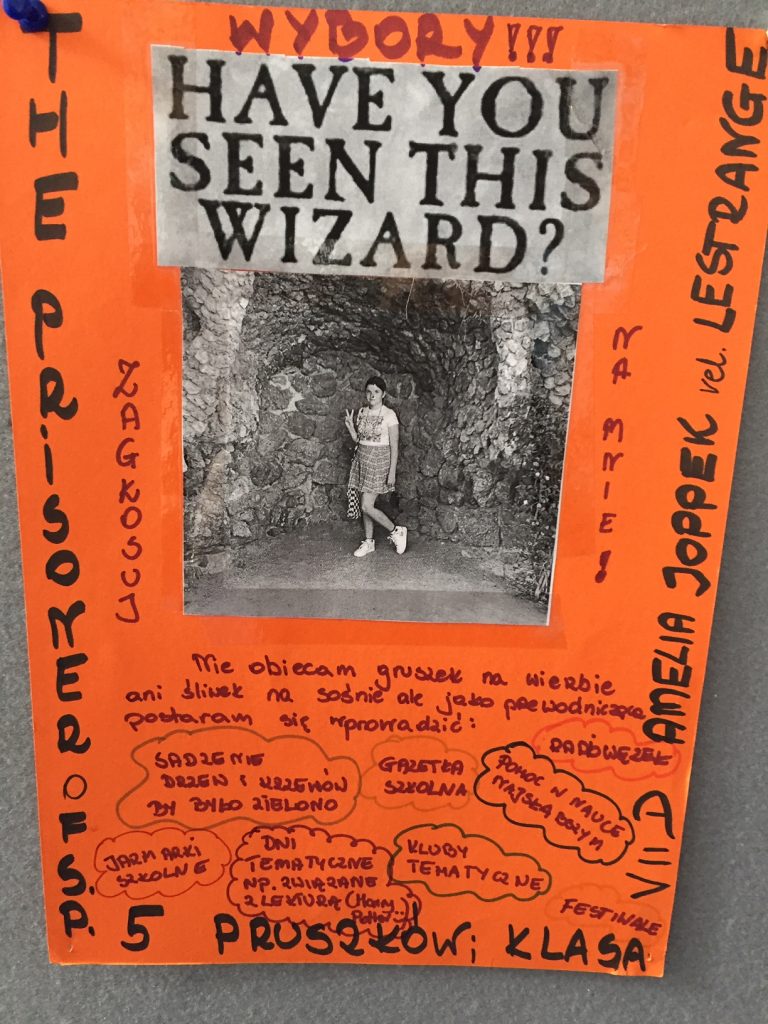 WYBORY!!!
HAVE YOU
SEEN THIS
WIZARD?
THE PRISONER OF S.P.
5 PRUSZKÓW; KLASA
VII D
AMELIA JOPPEK vel. LESTRANGE
ZAGŁOSUJ
NA MNIE!
Nie obiecam gruszek na wierbie
ani śliwek na sośnie ale jako przewodnicząca
postaram się wprowadzić:
SADZENIE
DRZEW I KRZEWÓW
BY BYŁO ZIELONO
GAZETKA
SZKOLNA
RADIOWĘZEŁ
POMOC W NAUCE
NAJSŁABSZYM
JARMARKI
SZKOLNE
DNI
TEMATYCZNE
NP. ZWIĄZANE
Z LEKTURĄ (Harry
Potter..)!
KLUBY
TEMATYCZNE
FESTIWALE